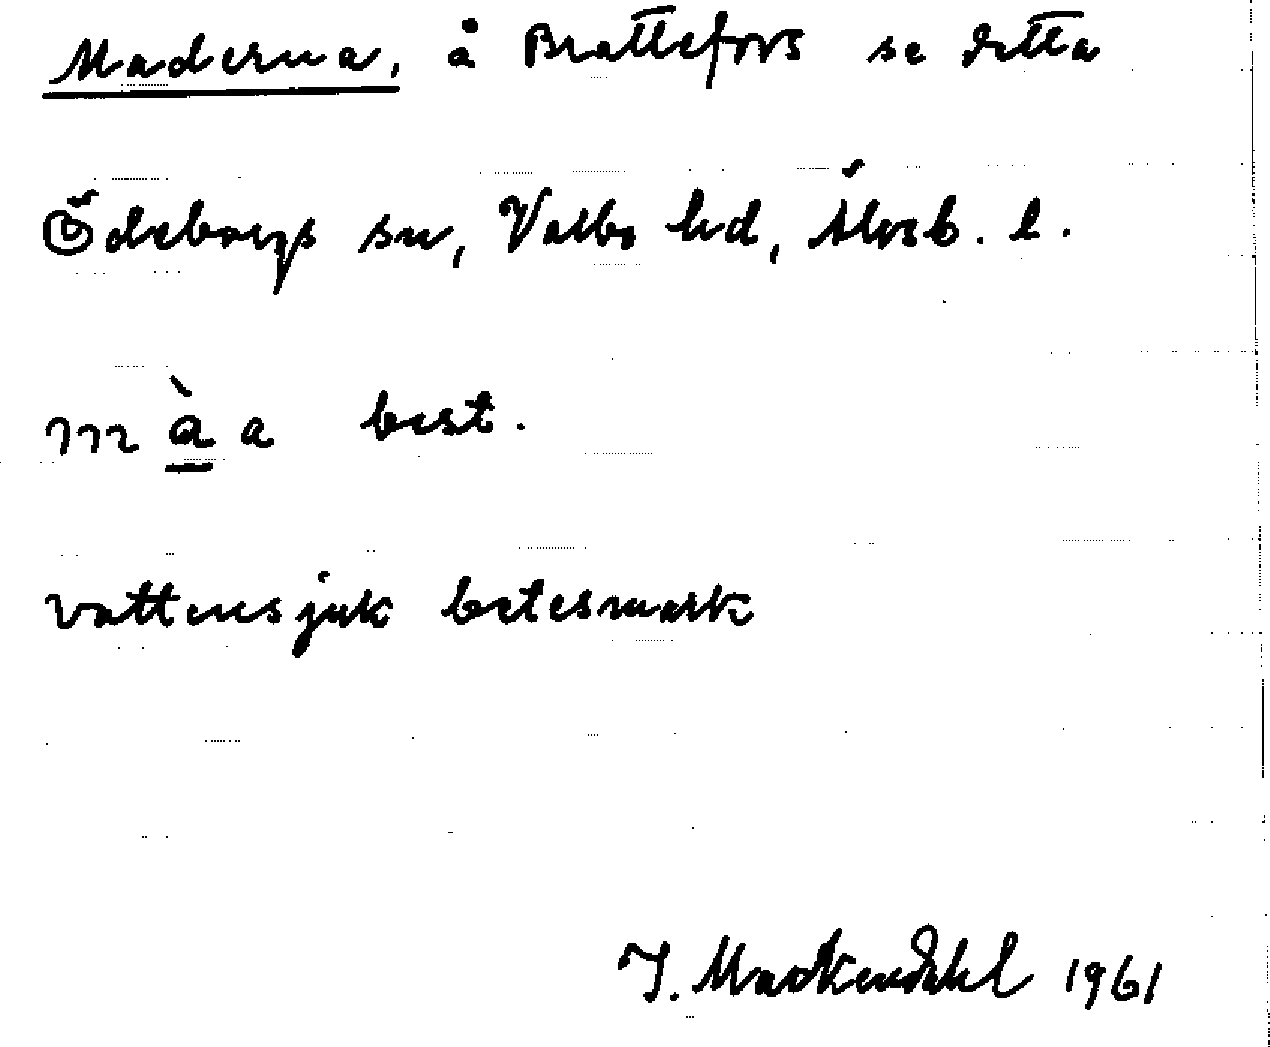 Maderna, å Brattefors se detta
Ödeborgs sn, Valbo hd, Älvsb. l.
màa best.
vattensjuk betesmark
J. Mackendahl 1961